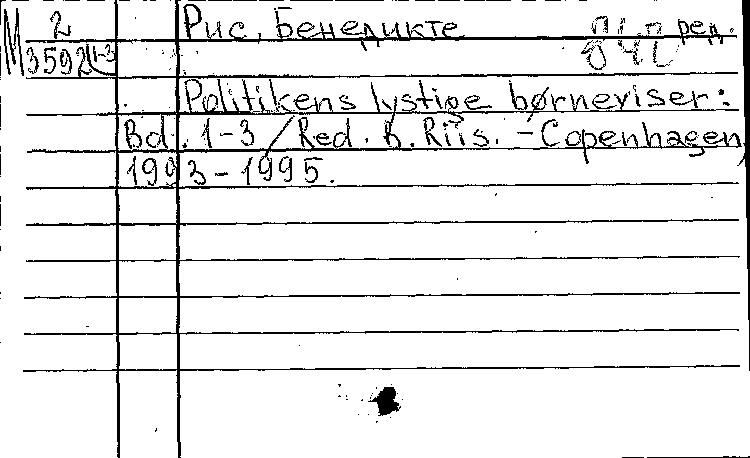 М 2 Рис, Бенедикте ред.
3592(1-3)
Politikens lystige børneviser:
Bd. 1-3 / Red. B. Riis. - Copenhagen,
1993-1995.